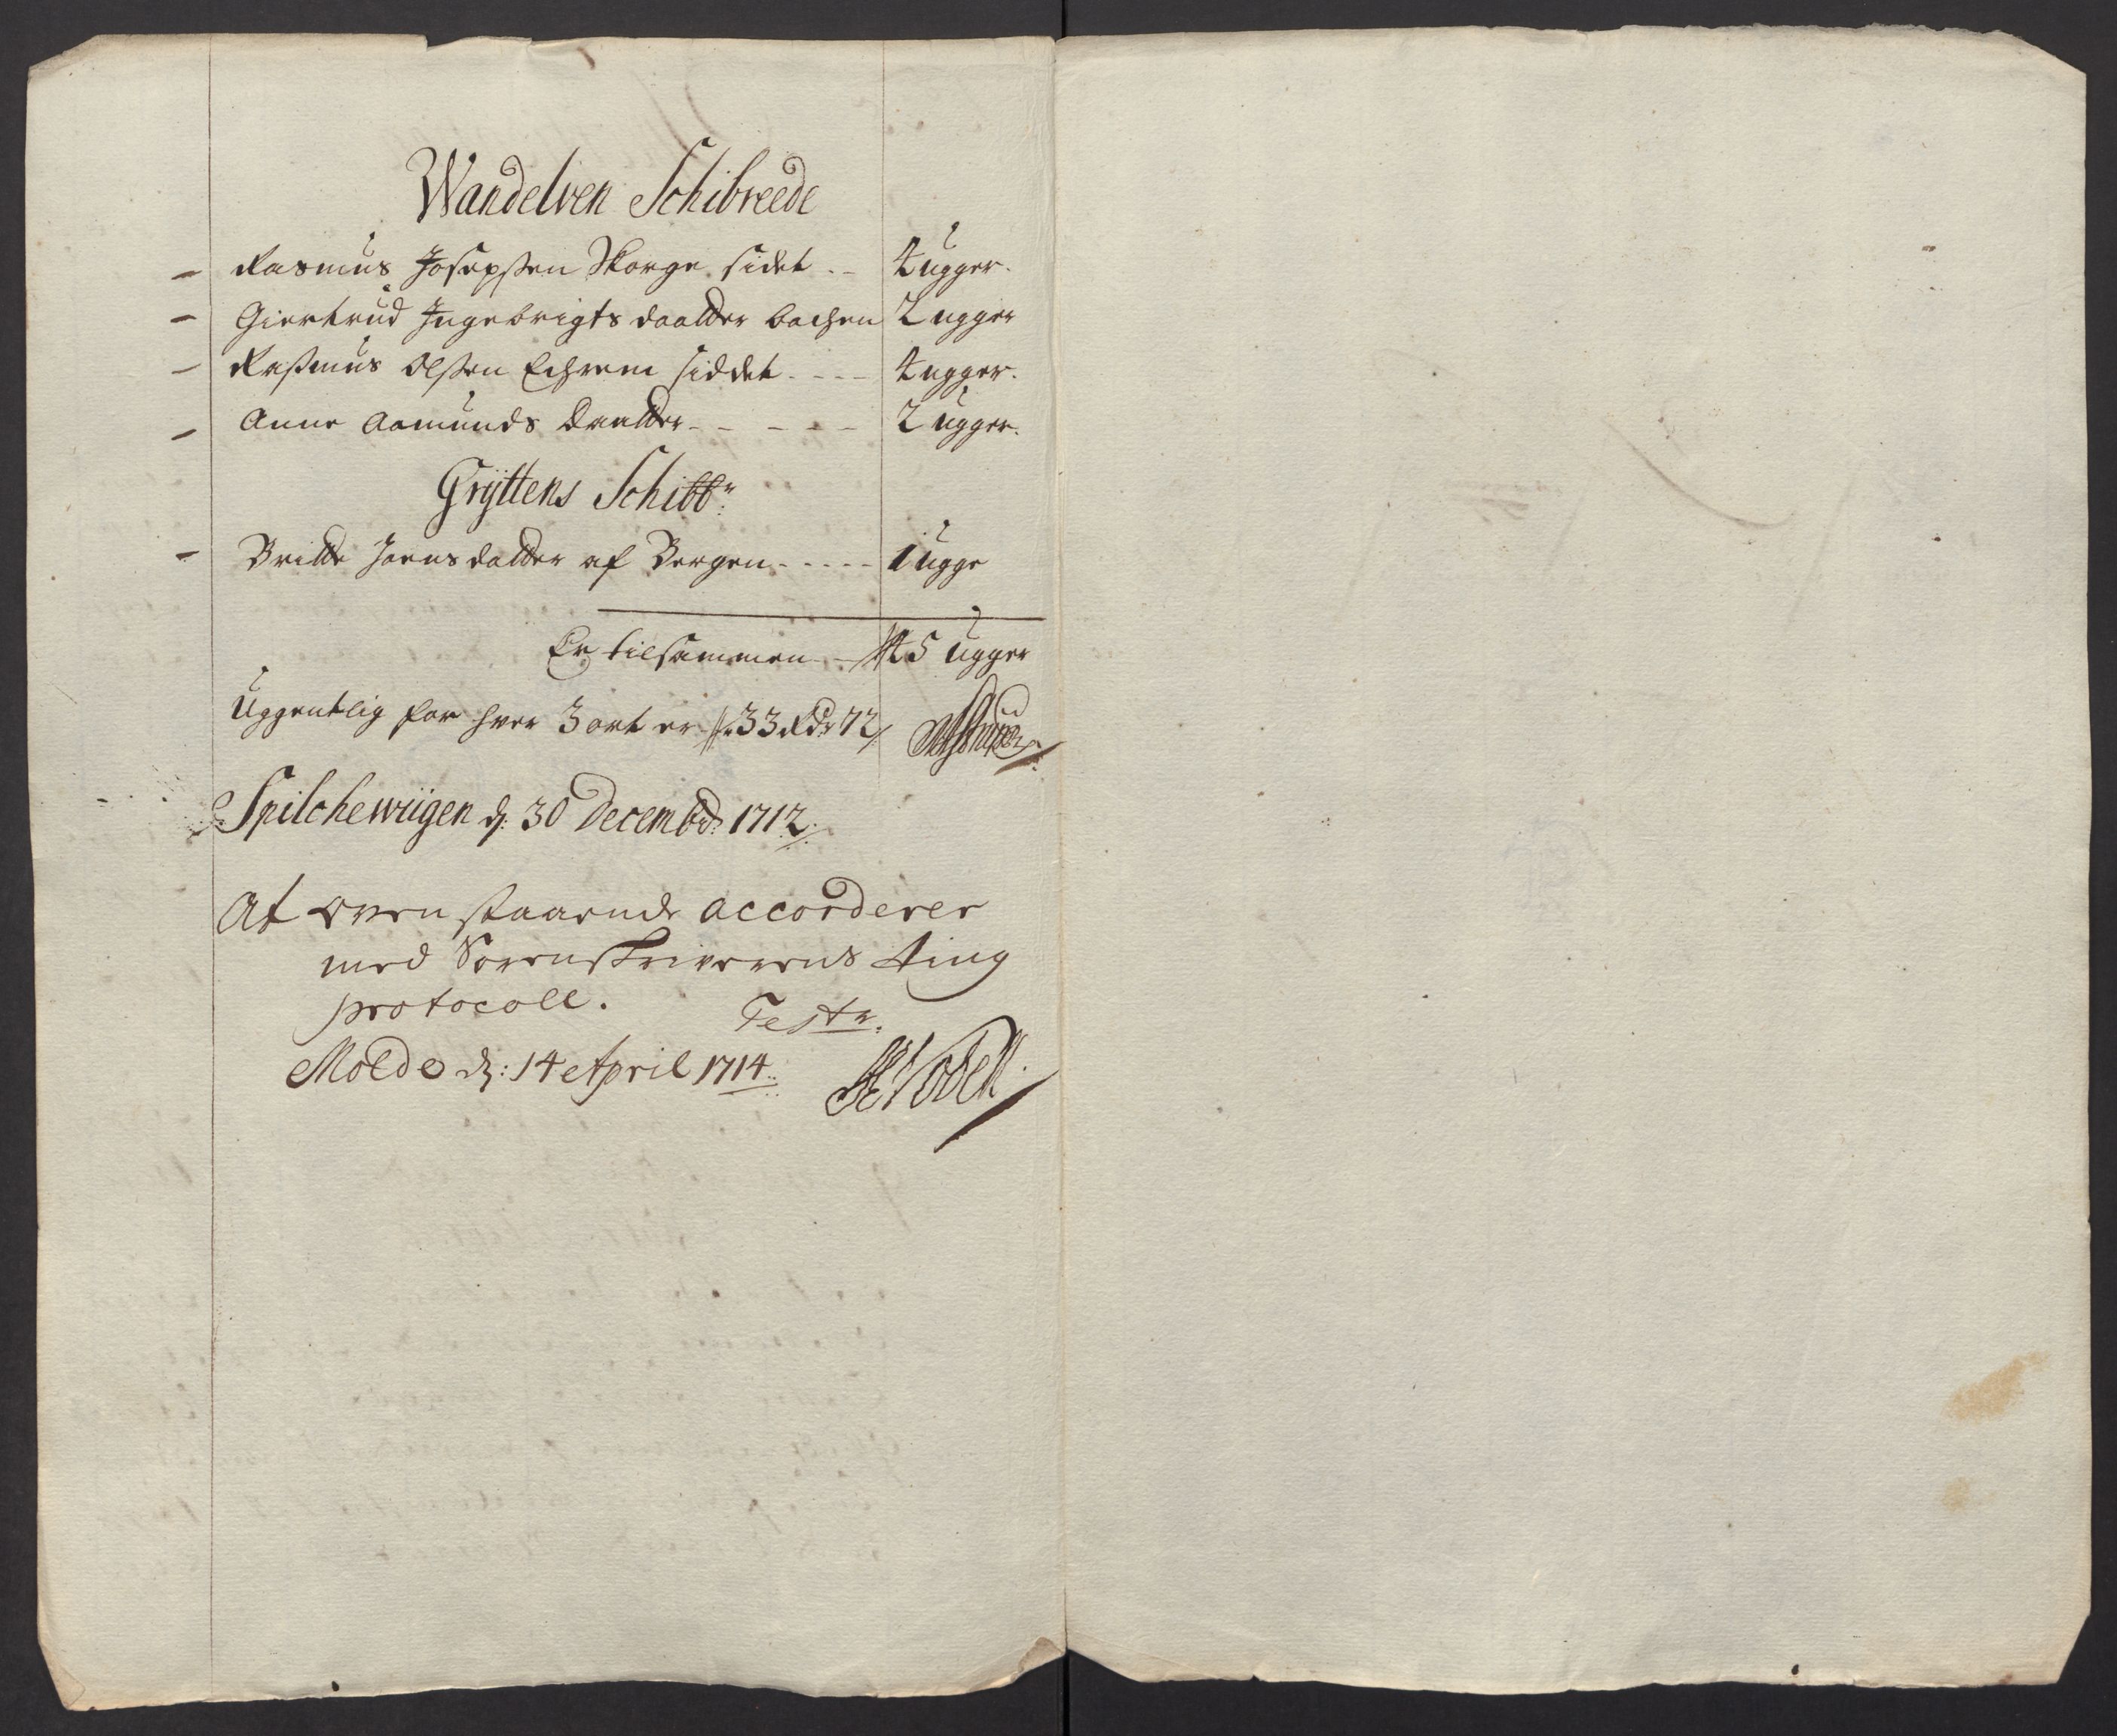 Wandelven Schibreede
- Rasmus Josepsen Skorge sidet .. 4 ugger.
- Giertrud Ingebrigts daatter bachen 2 ugger
- Rasmus Olsen Echrem siddet .... 4 ugger.
- Anne Aamunds daatter - - - - - 2 ugger.
Gryttens Schibbr:
- Britte Joensdatter af Bergen ..... 1 ugge
Er tilsammen - 45 ugger
Uggentlig for hver 3 ort er 33 Rdr 72
Spilchewiigen d: 30 Decembr: 1712
At oven staaende accorderer
med Sorenskriverens ting
protocoll.
Test:
Molde d: 14 April 1714